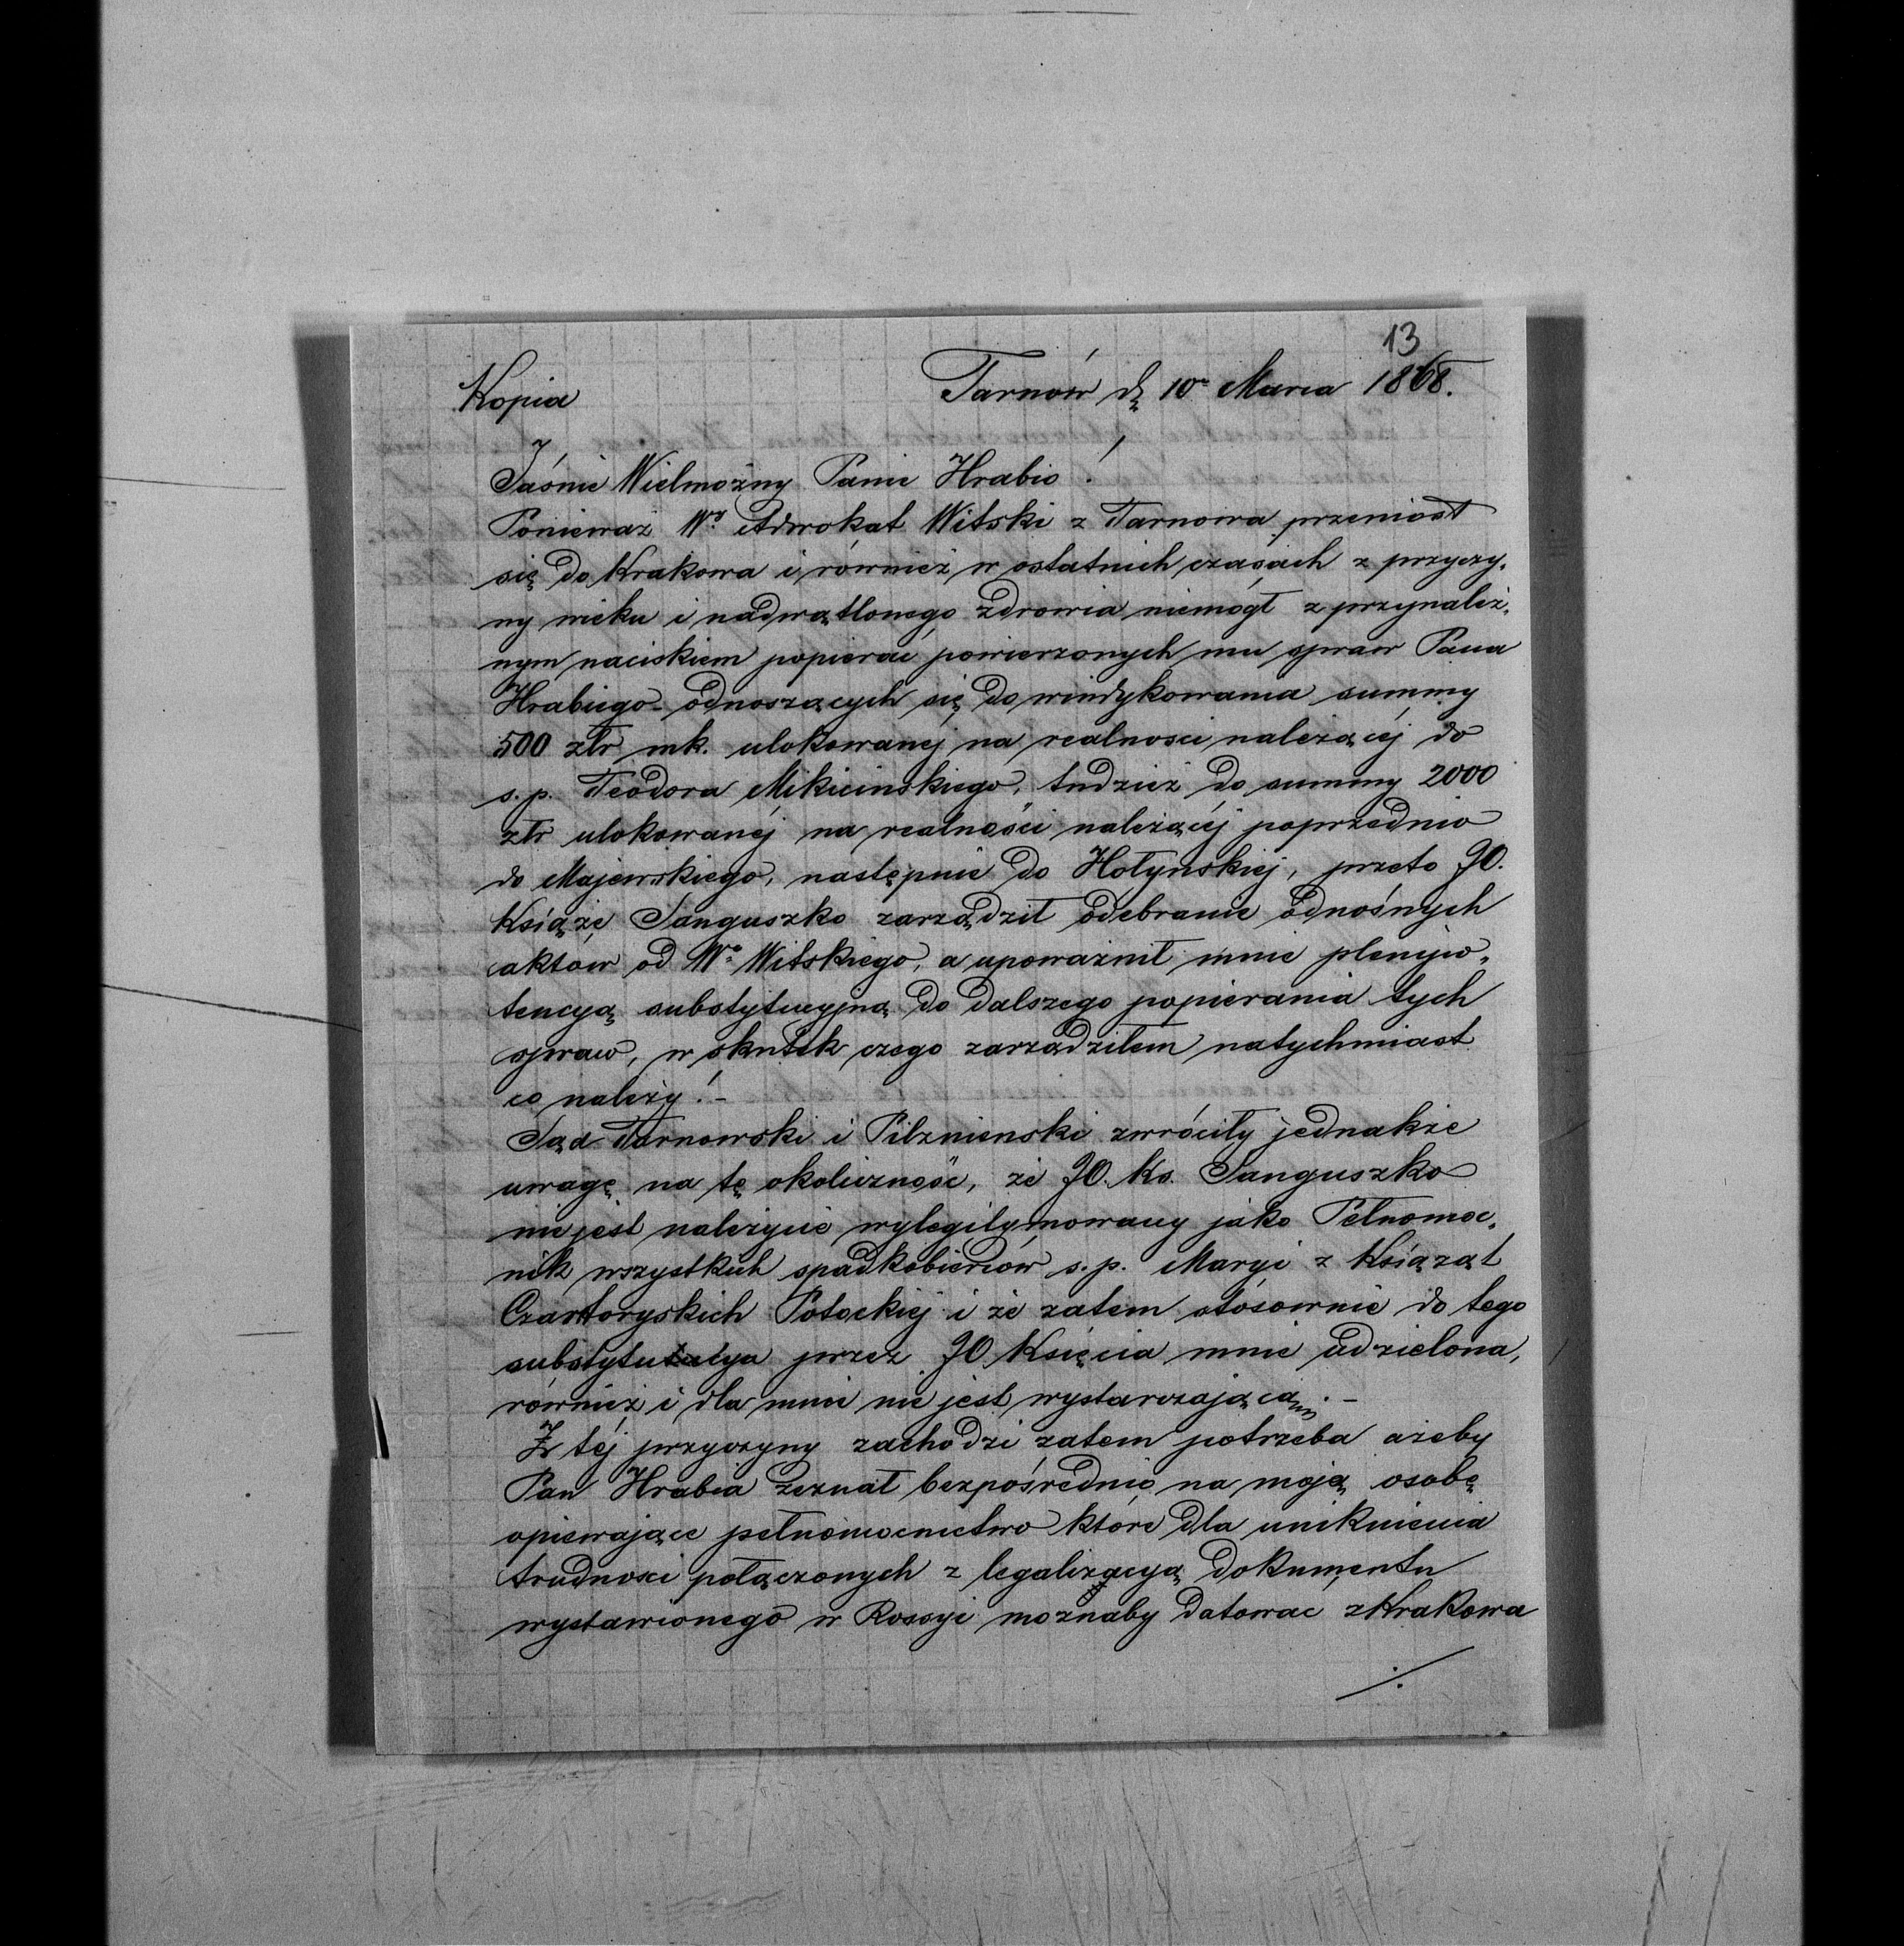 13
Kopia
Tarnów dn 10º Marca 1868.
Jaśnie Wielmożny Panie Hrabio!
Ponieważ Wy Adwokat Witski z Tarnowa przeniósł
się do Krakowa i również w ostatnich czasach z przyczy-
ny wieku i nadwątlonego zdrowia niemógł z przynależ-
nym naciskiem popierać powierzonych mu spraw Pana
Hrabiego odnoszących się do windykowania summy
500 złr mk. ulokowanéj na realności należącéj do
s.p. Teodora Mikicinskiego, tudzież do summy 2000
złr ulokowanéj na realności należącéj poprzednio
do Majewskiego, następnie do Hołynskiej, przeto JO.
Książę Sanguszko zarządził odebranie odnośnych
aktów od Wo Witskiego, a upoważnił mnie plenipo-
tencyą substytucyjną do dalszego popierania tych
spraw, w skutek czego zarządziłem natychmiast
co należy! -
Sąd Tarnowski i Pilznienski zwróciły jednakże
uwagę na tę okoliczność, że JO. Ks. Sanguszko
nie jest należycie wylegitymowany jako Pełnomoc-
nik wszystkich spadkobierców s.p. Maryi z Książąt
Czartoryskich Potockiej i że zatem stósownie do tego
substytucya przez JO Księcia mnie udzielona,
również i dla mnie nie jest wystarczającam. -
Z téj przyczyny zachodzi zatem potrzeba ażeby
Pan Hrabia zeznał bezpośrednio na moją osobę
opiewające pełnomocnictwo które dla uniknienia
trudności połączonych z legalizacyą dokumentu
wystawionego w Rossyi możnaby datować z Krakowa
./.